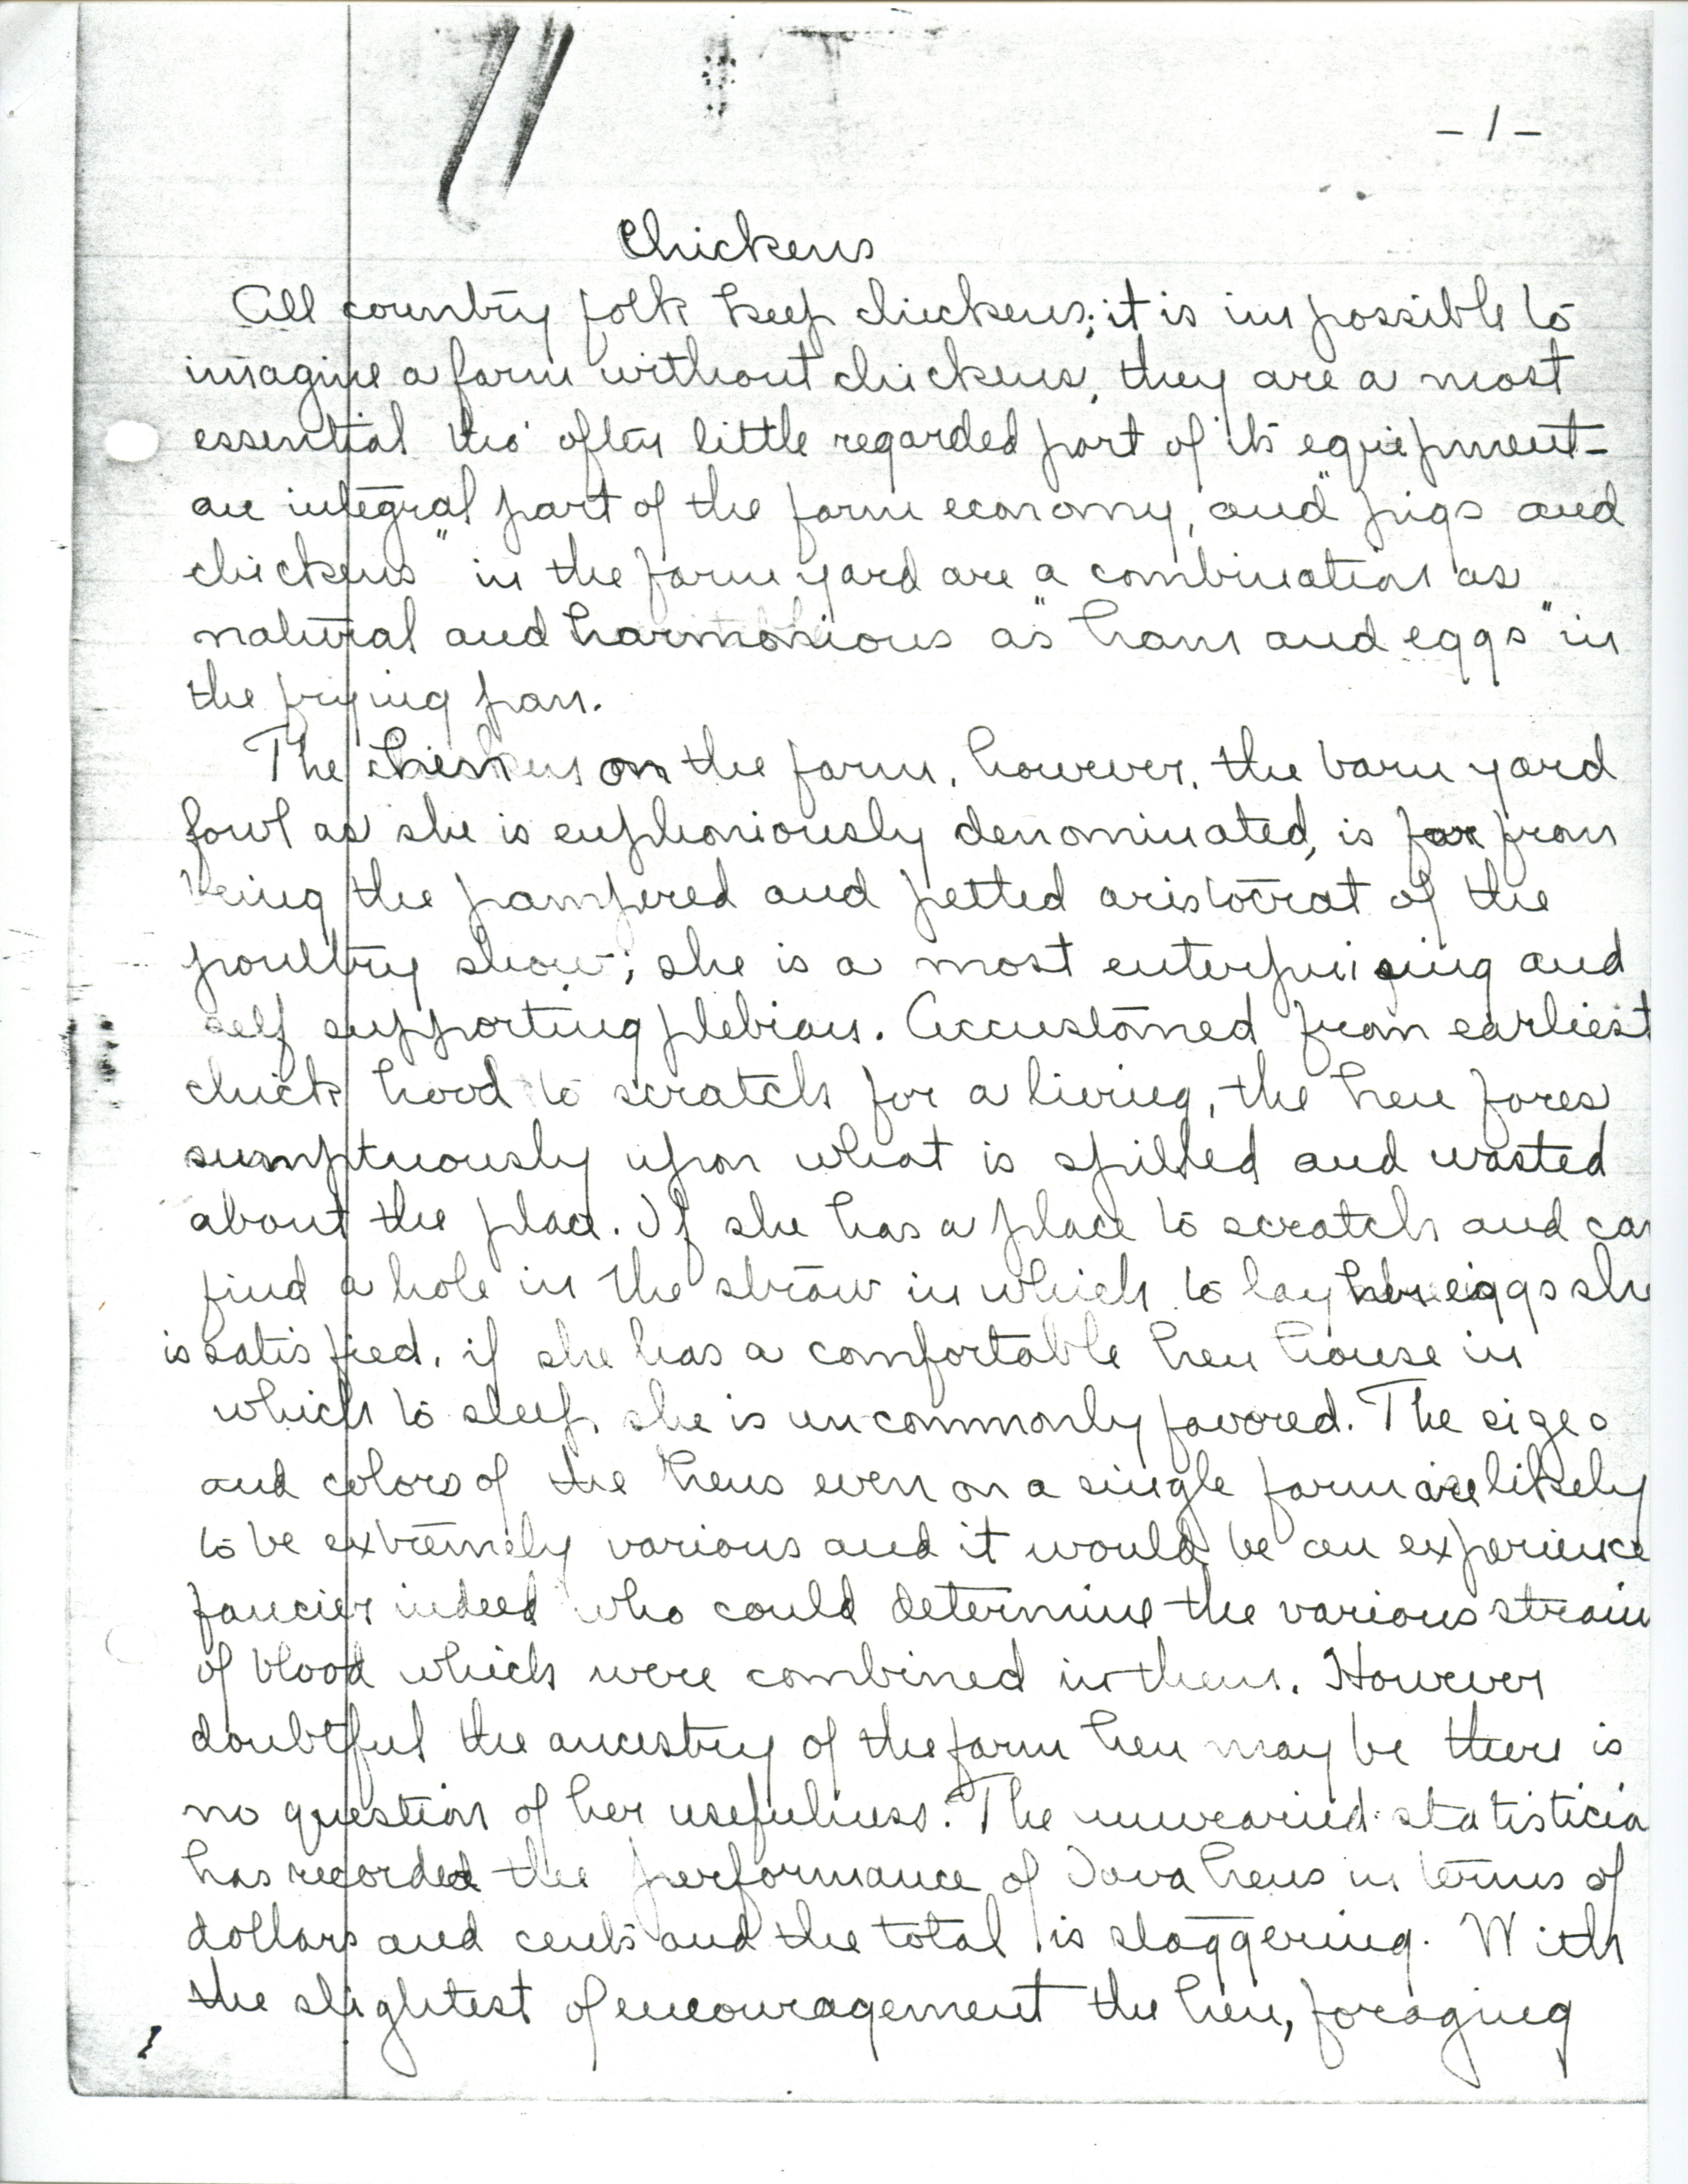 - 1 -
Chickens
All country folk keep chickens; it is impossible to
imagine a farm without chickens, they are a most
essential tho' often little regarded part of its equipment -
an integral part of the farm economy, and "pigs and
chickens" in the farm yard are a combination as
natural and harmonious as "ham and eggs" in
the frying pan.
The on the farm, however, the barn yard
fowl as she is euphoniously denominated, is far from
being the pampered and petted aristocrat of the
poultry show; she is a most enterprising and
self supporting plebian. Accustomed from earliest
chick hood to scratch for a living, the hen fares
sumptuously upon what is spilled and wasted
about the place. If she has a place to scratch and can
find a hole in the straw in which to lay her eggs she
is satisfied, if she has a comfortable hen house in
which to sleep, she is uncommonly favored. The sizes
and colors of the hens even on a single farm are likely
to be extremely various and it would be an experience
fancier indeed who could determine the various strain
of blood which were combined in them. However
doubtful the ancestry of the farm hen may be there is
no question of her usefulness. The unwearied statisticia
has recorded the performance of Iowa hens in terms of
dollars and cents and the total is staggering. With
the slightest of encouragement the hen, foraging
1